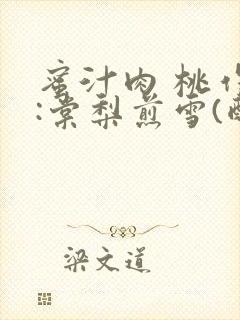 蜜汁肉桃
:棠梨煎雪(
梁文道